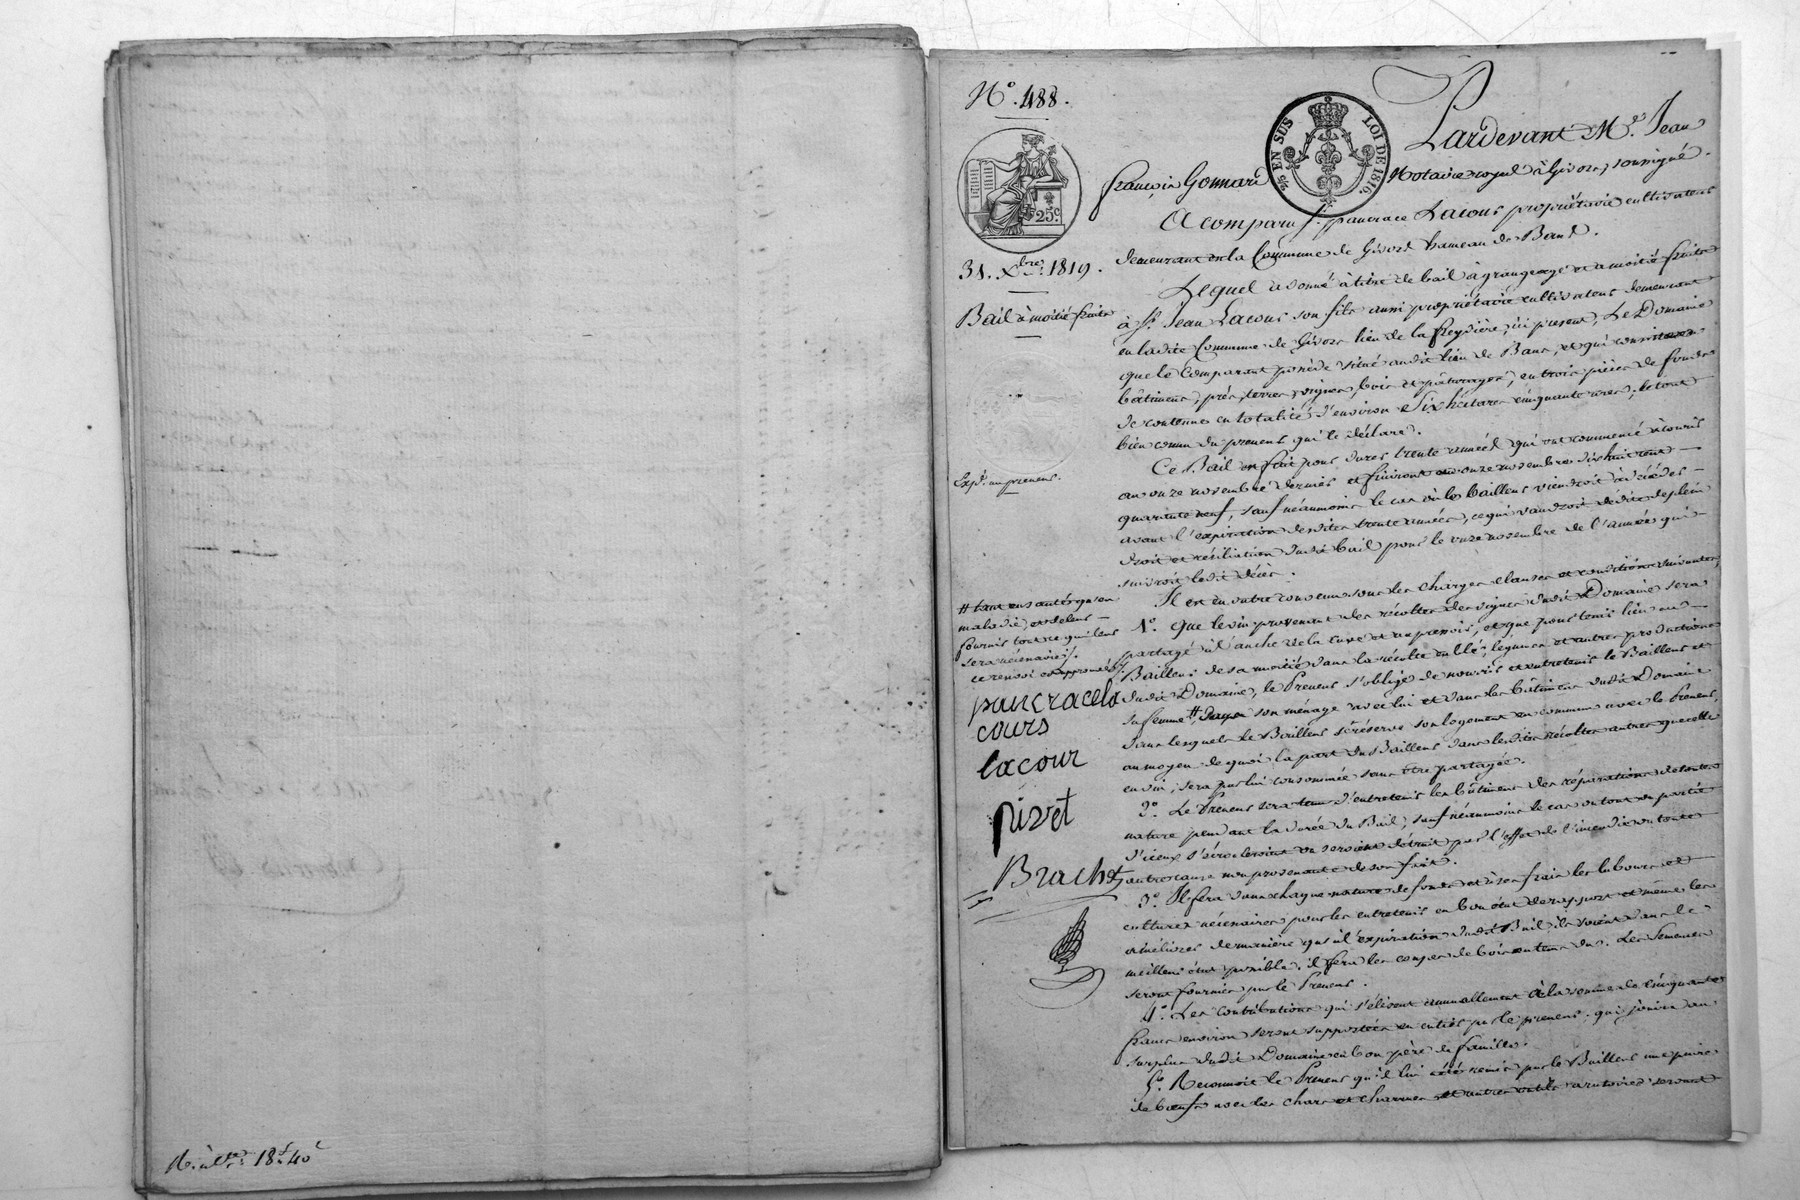 N.º 488.
25 EN SUS LOI DE 1816.
25.c
31. Xbre 1819.
Bail à moitié fruits
Expd. au preneur.
# tant en santé qu'en
maladie, et de leur
fournir tout ce qui leur
sera nécessaire /.
ce renvoi est approuvé /.
pancracela
cours
lacour
rivet
Brachet
Pardevant Me. Jean
françois Gonnard Notaire royal à Givors, soussigné.
A comparu Sr. pancrace Lacour propriétaire cultivateur
demeurant en la Commune de Givors hameau de Bans.
Lequel a donné à titre de bail à grangeage et à moitié fruits
à Sr. Jean Lacour son fils aussi propriétaire cultivateur demeurant
en ladite Commune de Givors lieu de la freydière, ici present, Le Domaine
que le Comparant possède situé audit lieu de Bans, et qui consiste en
bâtimens, prés, terres, vignes, bois et pâturages, en trois pièces de fonds
de contenue en totalité d'environ Six hectares cinquante ares, le tout
bien connu du preneur qui le déclare.
Ce Bail est fait pour durer trente années qui ont commencé à courir
au onze novembre dernier et finiront au onze novembre dix huit cent
quarante neuf, sauf néanmoins le cas où le bailleur viendroit à décéder
avant l'expiration desdites trente années, ce qui vaudroit dédite de plein
droit et résiliation dudit bail pour le onze novembre de l'année qui
suivroit ledit décès.
Il est en outre convenu sous les charges clauses et conditions suivantes,
1.º Que le vin provenant des récoltes des vignes dudit Domaine sera
partagé à l'anche de la cuve et au pressoir, et que pour tenir lieu au
Bailleur de sa moitié dans la récolte en blé, légumes et autres productions
dudit Domaine, le Preneur s'oblige de nourrir et entretenir le Bailleur et
sa femme # dans son ménage avec lui et dans les bâtimens dudit Domaine
dans lesquels le Bailleur se réserve son logement en commun avec le Preneur,
au moyen de quoi la part du Bailleur dans lesdites récoltes autres que celle
en vin, sera par lui consommée sans être partagée.
2.º Le Preneur sera tenu d'entretenir les bâtimens des réparations de toute
nature pendant la durée du Bail, sauf néanmoins le cas où tout ou partie
d'iceux s'écrouleroient ou seroient détruit par l'effet de l'incendie ou toute
autre cause non provenante de son fait.
3.º Il fera dans chaque nature de fonds et à ses frais les labours et
cultures nécessaires pour les entretenir en bon état de rapport et même les
améliorer de manière qu'à l'expiration dudit Bail ils soient dans le
meilleur état possible. il fera les coupes de bois en tems du. Les Semences
seront fournies par le Preneur.
4.º Les contributions qui s'élèvent annuellement à la somme de Cinquante
francs environ seront supportées en entier par le preneur. qui jouira au
surplus dudit Domaine en bon père de famille.
5.º Reconnoit le Preneur qu'il lui a été remis par le Bailleur une paire
de bœufs avec les chars et charrues et autres outils aratoires servant